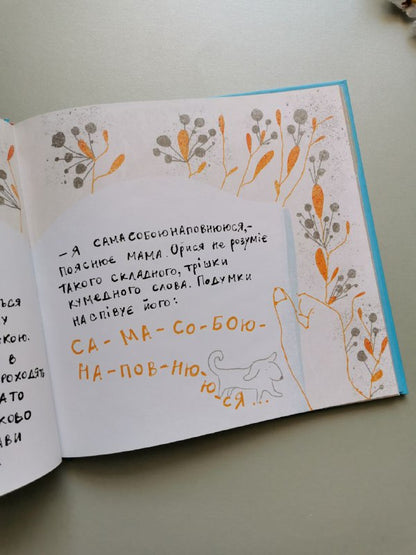 ТЬСЯ
У
КОЮ.
В
РОХОДЯТЬ
АТО
КОВО
АВИ
– Я САМАСОБОЮНАПОВНЮЮСЯ,–
ПОЯСНЮЄ МАМА. ОРИСЯ НЕ РОЗУМІЄ
ТАКОГО СКЛАДНОГО, ТРІШКИ
КУМЕДНОГО СЛОВА. ПОДУМКИ
НАСПІВУЄ ЙОГО:
СА-МА-СО-БОЮ-
НА-ПОВ-НЮ-
Ю-
Ю-СЯ...